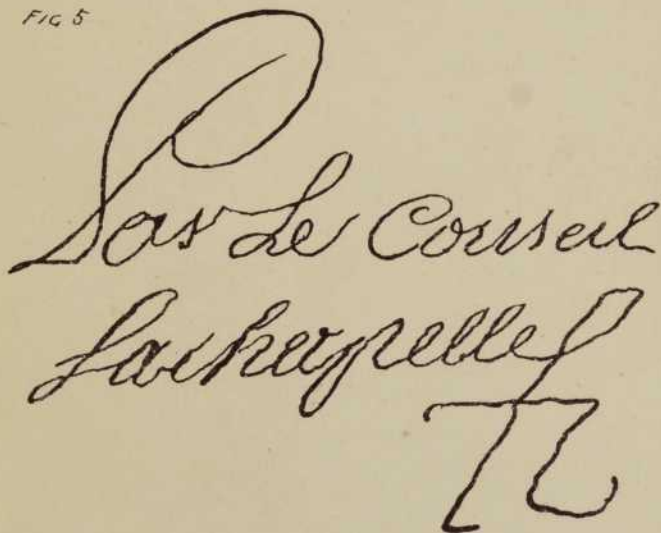 FIG 5
Par Le Conseil
Lachapelle